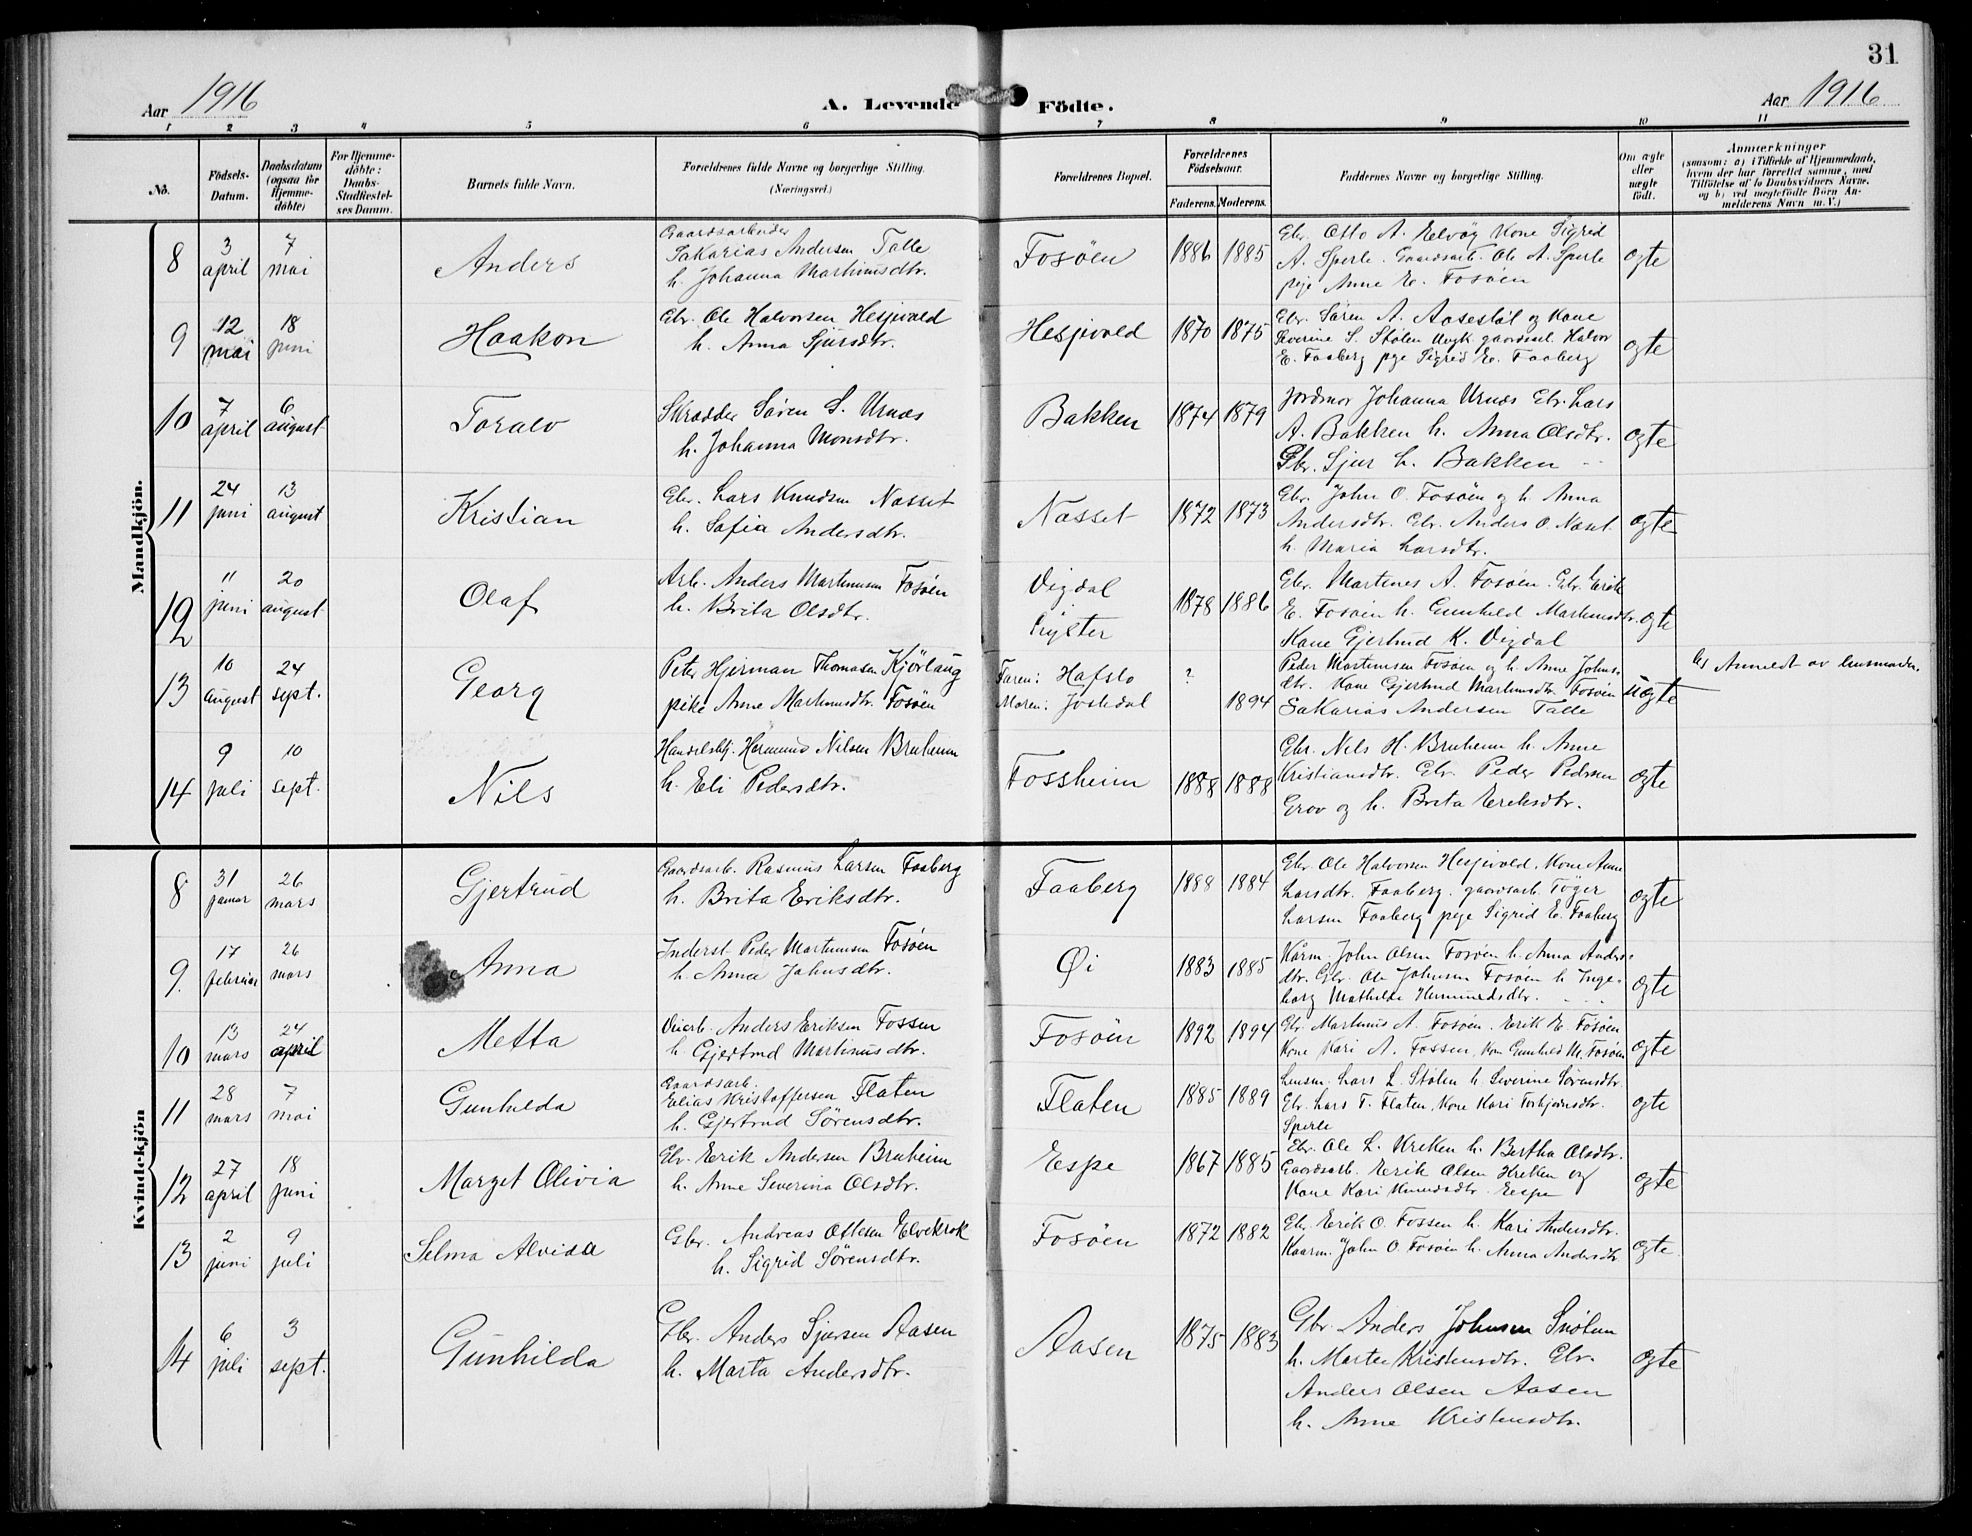 31
Aar 1916
A. Levende Födte.
Aar 1916
1 2 3 4 5 6 7 8 9 10 11
No.
Födsels-
Datum.
Daabsdatum
(ogsaa for
Hjemme-
döbte)
For Hjemme-
döbte:
Daabs-
Stadfæstel-
ses Datum.
Barnets fulde Navn.
Forældrenes fulde Navne og borgerlige Stilling.
(Næringsvei.)
Forældrenes Bopæl.
Forældrenes
Födselsaar.
Faderens. Moderens.
Faddernes Navne og borgerlige Stilling.
Om ægte
eller
uægte
födt.
Anmærkninger
(saasom: a) i Tilfælde af Hjemmedaab,
hvem der har forrettet samme, med
Tilföielse af to Daabsvidners Navne,
og b) ved uægtefödte Börn An-
melderens Navn m. V.)
Mandkjön.
8
3
april
7
mai
Anders
Gaardsarbeider
Sakarias Andersen Talle
h. Johanna Martinusdtr.
Fosöen
1886 1885
Gbr. Otto A. Elvög Kone Sigrid
A. Sperle. Gaardsarb. Ole A. Sperle
pige Anne E. Fosöen
ægte
9
12
mai
18
juni
Haakon
Gbr. Ole Halvorsen Hesjevold
h. Anna Sjursdtr.
Hesjevold
1870 1875
Gbr. Sören A. Aasestöl og Kone
Severine S. Stölen Ungk. gaardsarb. Halvor
E. Faaberg pge Sigrid E. Faaberg
ægte
10
7
april
6
august
Toralv
Skrædder Sören S. Urnæs
h. Johanna Monsdtr.
Bakken
1874 1879
Jordmor Johanna Urnæs Gbr. Lars
A. Bakken h. Anna Olsdtr.
Gbr. Sjur L. Bakken
ægte
11
24
juni
13
august
Kristian
Gbr. Lars Knudsen Næsset
h. Sofia Andersdtr.
Næsset
1872 1873
Gbr. John O. Fosöen og h. Anna
Andersdtr. Gbr. Anders O. Næset
h. Maria Larsdtr.
ægte
12
11
juni
20
august
Olaf
Arb. Anders Martinusen Fosöen
h. Brita Olsdtr.
Vigdal
Lyster
1878 1886
Gbr. Martines A. Fosöen. Gbr. Erik
E. Fosöen h. Gunhild Martinusdtr.
Kone Gjertrud K. Vigdal
ægte
13
10
august
24
sept.
Georg
Peter Hjerman Thomasen Kjörlaug
pike Anne Martinusdtr. Fosöen
Faren: Hafslo
Moren: Jostedal
?
1894
Peder Martinusen Fosöen og h. Anne Johns-
dtr. Kone Gjertrud Martinusdtr. Fosöen
Sakarias Andersen Talle
uægte
b) Anmeldt av lensmanden.
14
9
juli
10
sept.
Nils
Handelsbtj. Hermund Nilsen Bruheim
h. Eli Pedersdtr.
Fossheim
1888 1888
Gbr. Nils H. Bruheim h. Anne
Kristiansdtr. Gbr. Peder Pedersen
Grov og h. Brita Eriksdtr.
ægte
Kvindekjön
8
31
januar
26
mars
Gjertrud
Gaardsarb. Rasmus Larsen Faaberg
h. Brita Eriksdtr.
Faaberg
1888 1884
Gbr. Ole Halvorsen Hesjevold. Kone Anne
Larsdtr. Faaberg. gaardsarb. Töger
Larsen Faaberg pge Sigrid E. Faaberg
ægte
9.
17
februar
26
mars
Anna
Inderst Peder Martinusen Fosöen
h. Anna Johnsdtr.
Öi
1883 1885
Kårm. John Olsen Fosöen h. Anna Anders-
dtr. Gbr. Ole Johnsen Fosöen h Inge-
borg Mathilde Hermundsdtr.
ægte
10
13
mars
24
april
Metta
Veiarb. Anders Eriksen Fossen
h. Gjertrud Martinusdtr.
Fosöen
1892 1894
Gbr. Martinus A. Fosöen. Erik E. Fosöen
Kone Kari A. Fossen, Kone Gunhild M. Fosöen
ægte
11
28
mars
7
mai
Gunhilda
Gaardsarb.
Elias Kristoffersen Flaten
h. Gjertrud Sörensdtr.
Flaten
1885 1889
Lensm. Lars L. Stölen h. Severine Sörensdtr.
Gbr. Lars T. Flaten, Kone Kari Torbjörnsdtr.
Sperle
ægte
12
27
april
18
juni
Marget Olivia
Gbr. Erik Andersen Bruheim
h. Anne Severina Olsdtr.
Espe
1867 1885
Gbr. Ole L. Kreken h. Bertha Olsdtr.
Gaardsarb. Erik Olsen Kreken og
Kone Kari Knudsdtr. Espe
ægte
13
2
juni
9
juli
Selma Alvida
Gbr. Andreas Ottesen Elvekrok
h. Sigrid Sörensdtr.
Fosöen
1872 1882
Gbr. Erik O. Fossen h. Kari Andersdtr.
Kaarm. John O. Fosöen h. Anna Andersdtr
ægte
14
6
juli
3
sept.
Gunhilda
Gbr. Anders Sjursen Aasen
h. Marta Andersdtr.
Aasen
1875 1883
Gbr. Anders Johnsen Snötun
h. Marte Kristensdtr. Gbr.
Anders Olsen Aasen
h. Anne Kristensdtr.
ægte